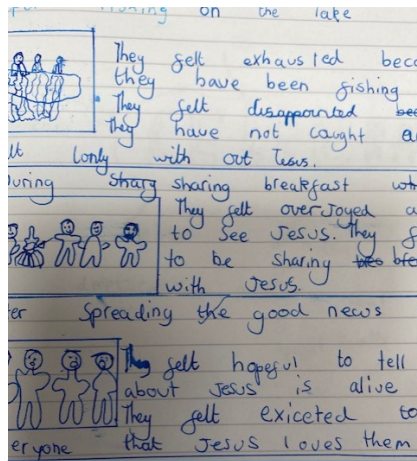 on the lake
They felt exhausted beca
they have been fishing
They felt disappointed bec
They have not caught a
lt lonly with out Jesus.
During Sharg sharing breakfast wit
They felt over Joyed a
to see Jesus. They f
to be sharing bfe
with Jesus.
er Spreading the good news
They felt hopeful to tell
about Jesus is alive
They felt exiceted to
eryone that Jesus loves them